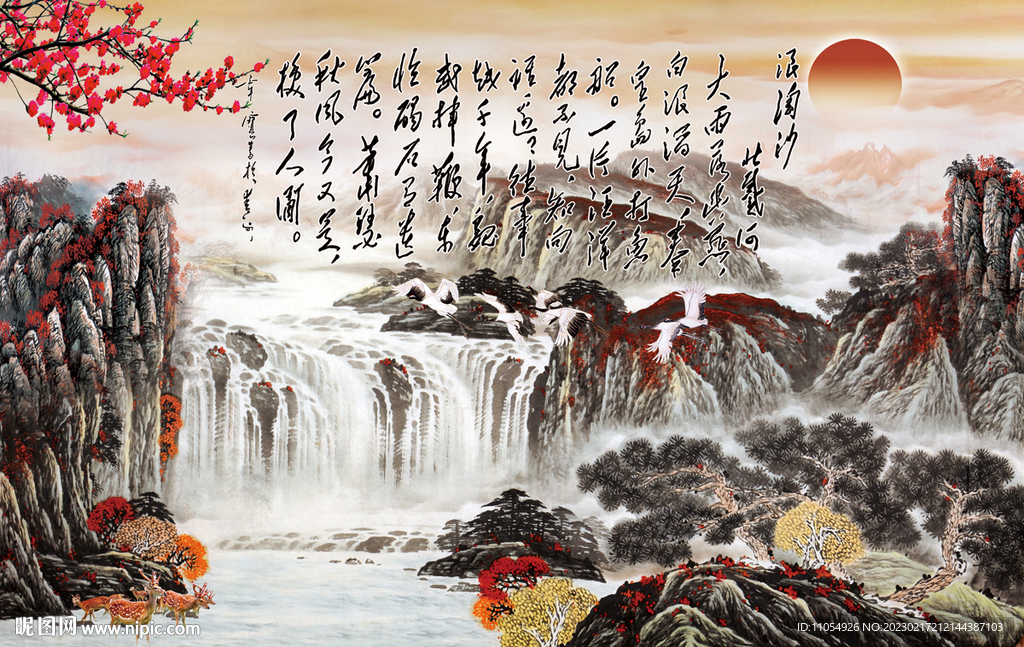 浪淘沙
北戴河
大雨落幽燕，
白浪滔天，秦
皇岛外打魚
船。一片汪洋
都不見，知向
谁边？往事
越千年，魏
武挥鞭，东
临碣石有遗
篇。萧瑟
秋风今又是，
换了人间。
昵图网 www.nipic.com
ID:11054926 NO:20230217212144387103